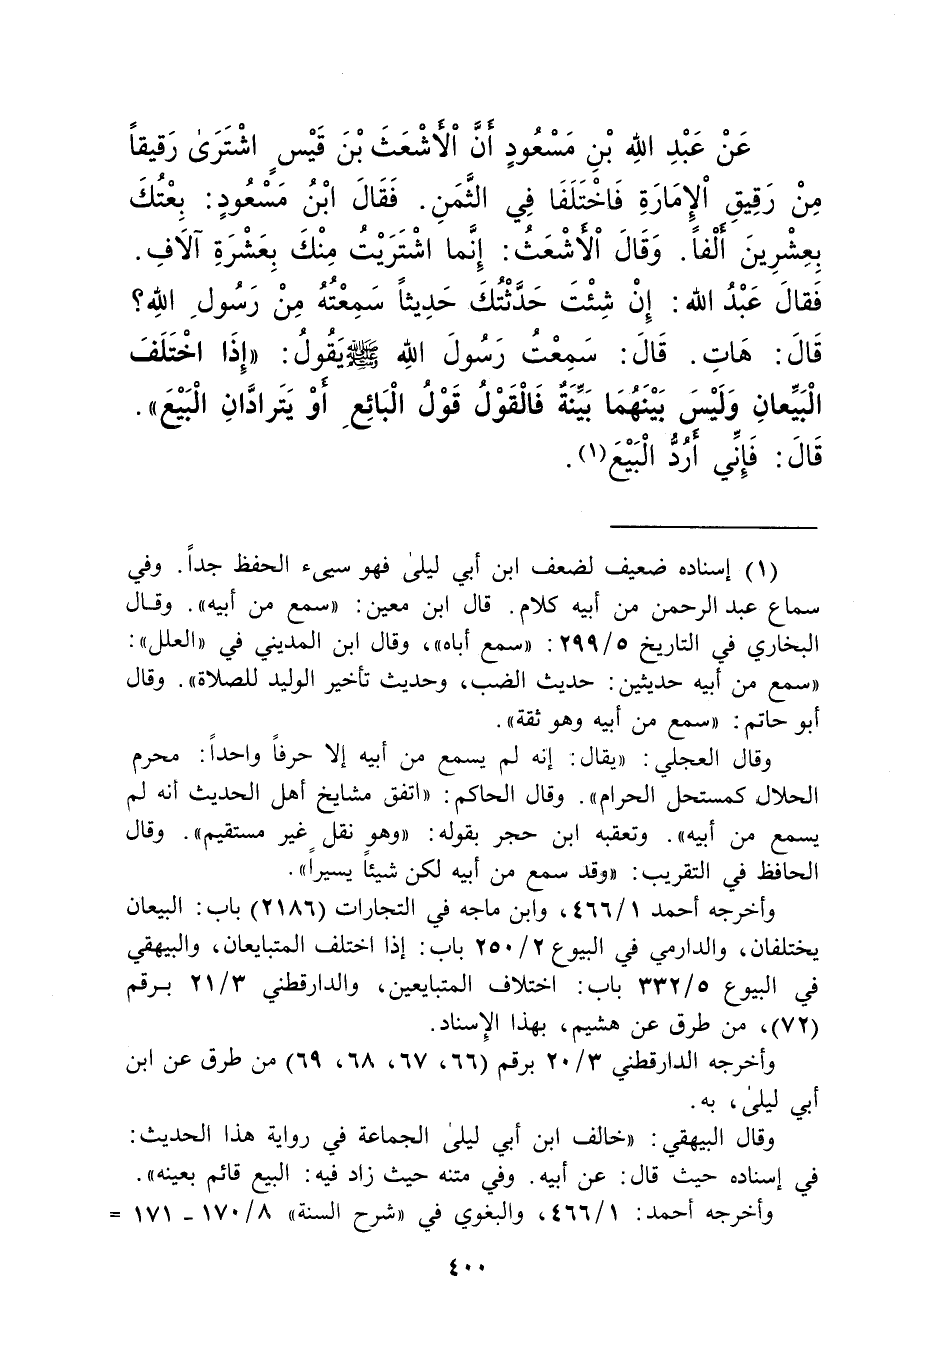 عَنْ عَبْدِ اللهِ بْنِ مَسْعُودٍ أَنَّ الْأَشْعَثَ بْنَ قَيْسٍ اشْتَرَىٰ رَقِيقاً
مِنْ رَقِيقِ الْإِمَارَةِ فَاخْتَلَفَا فِي الثَّمَنِ. فَقَالَ ابْنُ مَسْعُودٍ: بِعْتُكَ
بِعِشْرِينَ أَلْفاً. وَقَالَ الْأَشْعَثُ: إِنَّما اشْتَرَيْتُ مِنْكَ بِعَشْرَةِ آلَافِ.
فَقالَ عَبْدُ الله: إِنْ شِئْتَ حَدَّثْتُكَ حَدِيثاً سَمِعْتُهُ مِنْ رَسُولِ اللهِ؟
قَالَ: هَاتِ. قَالَ: سَمِعْتُ رَسُولَ اللهِ ﷺ يَقُولُ: «إِذَا اخْتَلَفَ
الْبَيِّعانِ وَلَيْسَ بَيْنَهُمَا بَيِّنَةٌ فَالْقَوْلُ قَوْلُ الْبَائِعِ أَوْ يَتَرادَّانِ الْبَيْعَ».
قَالَ: فَإِنِّي أَرُدُّ الْبَيْعَ(١).
(١) إسناده ضعيف لضعف ابن أبي ليلىٰ فهو سيىء الحفظ جداً. وفي
سماع عبد الرحمن من أبيه كلام. قال ابن معين: «سمع من أبيه». وقال
البخاري في التاريخ ٢٩٩/٥: «سمع أباه»، وقال ابن المديني في «العلل»:
«سمع من أبيه حديثين: حديث الضب، وحديث تأخير الوليد للصلاة». وقال
أبو حاتم: «سمع من أبيه وهو ثقة».
وقال العجلي: «يقال: إنه لم يسمع من أبيه إلا حرفاً واحداً: محرم
الحلال كمستحل الحرام». وقال الحاكم: «اتفق مشايخ أهل الحديث أنه لم
يسمع من أبيه». وتعقبه ابن حجر بقوله: «وهو نقل غير مستقيم». وقال
الحافظ في التقريب: «وقد سمع من أبيه لكن شيئاً يسيراً».
وأخرجه أحمد ٤٦٦/١، وابن ماجه في التجارات (٢١٨٦) باب: البيعان
يختلفان، والدارمي في البيوع ٢٥٠/٢ باب: إذا اختلف المتبايعان، والبيهقي
في البيوع ٣٣٢/٥ باب: اختلاف المتبايعين، والدارقطني ٢١/٣ برقم
(٧٢)، من طرق عن هشيم، بهذا الإسناد.
وأخرجه الدارقطني ٢٠/٣ برقم (٦٦، ٦٧، ٦٨، ٦٩) من طرق عن ابن
أبي ليلىٰ، به.
وقال البيهقي: «خالف ابن أبي ليلىٰ الجماعة في رواية هذا الحديث:
في إسناده حيث قال: عن أبيه. وفي متنه حيث زاد فيه: البيع قائم بعينه».
وأخرجه أحمد: ٤٦٦/١، والبغوي في «شرح السنة» ١٧٠/٨ ـ ١٧١ =
٤٠٠